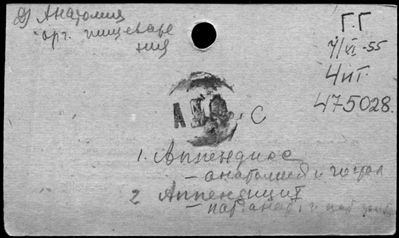 Д) Анатомия
орг. пищеваре
ния
Г.Г
7/VI-55
4ит
475028.
С
1. Аппендикс
- анатомия и гистол
2 Аппендицит
- пат. анат. и пат.